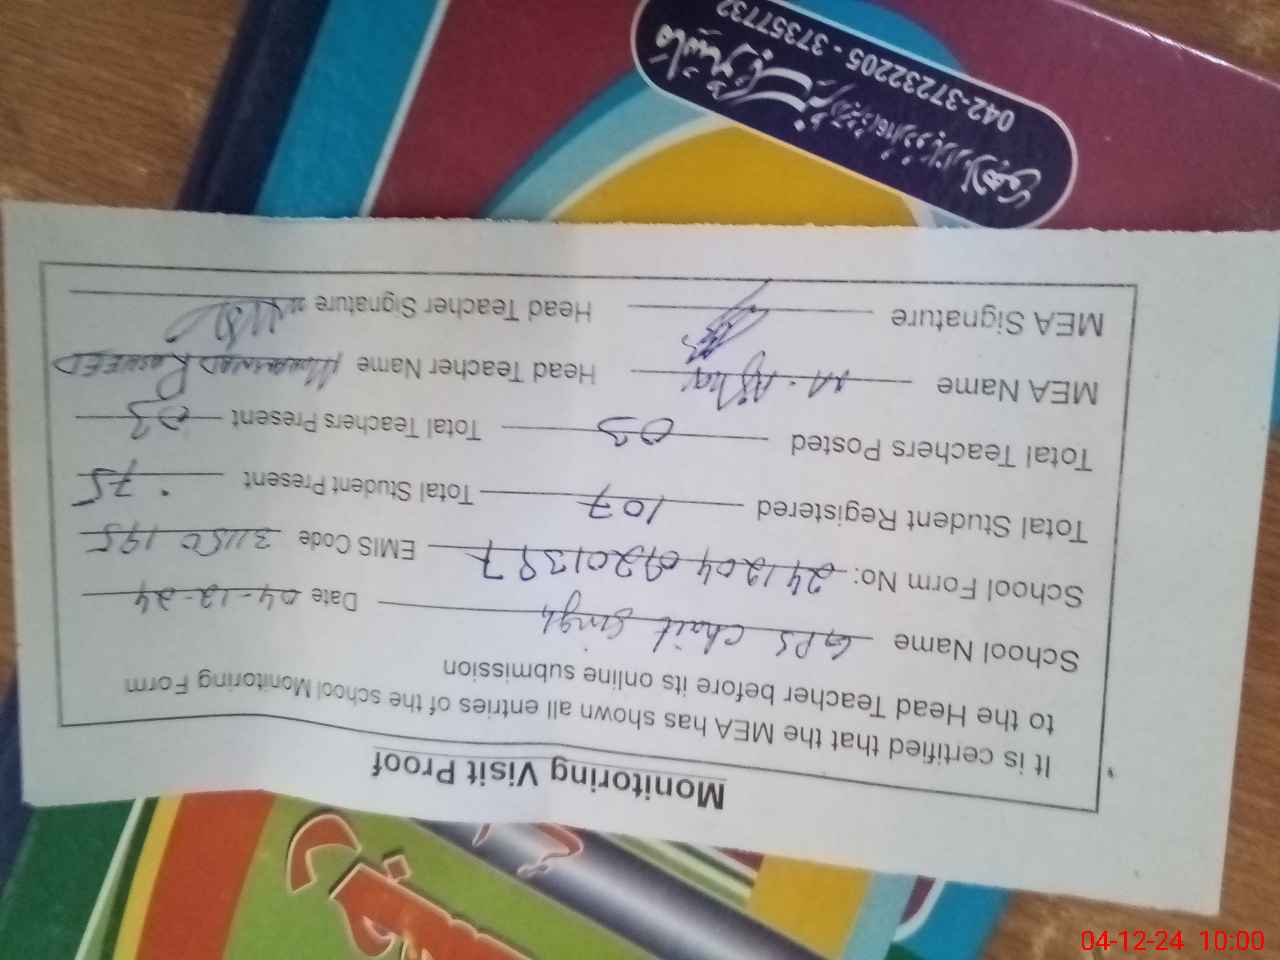 Monitoring Visit Proof
It is certified that the MEA has shown all entries of the school Monitoring Form
to the Head Teacher before its online submission
School Name GPS Chait Singh Date 04-12-24
School Form No: 24120409201397 EMIS Code 31150195
Total Student Registered 107 Total Student Present 75
Total Teachers Posted 03 Total Teachers Present 03
MEA Name M. Head Teacher Name RASHEED
MEA Signature Head Teacher Signature
042-37232205 - 37357732
04-12-24 10:00